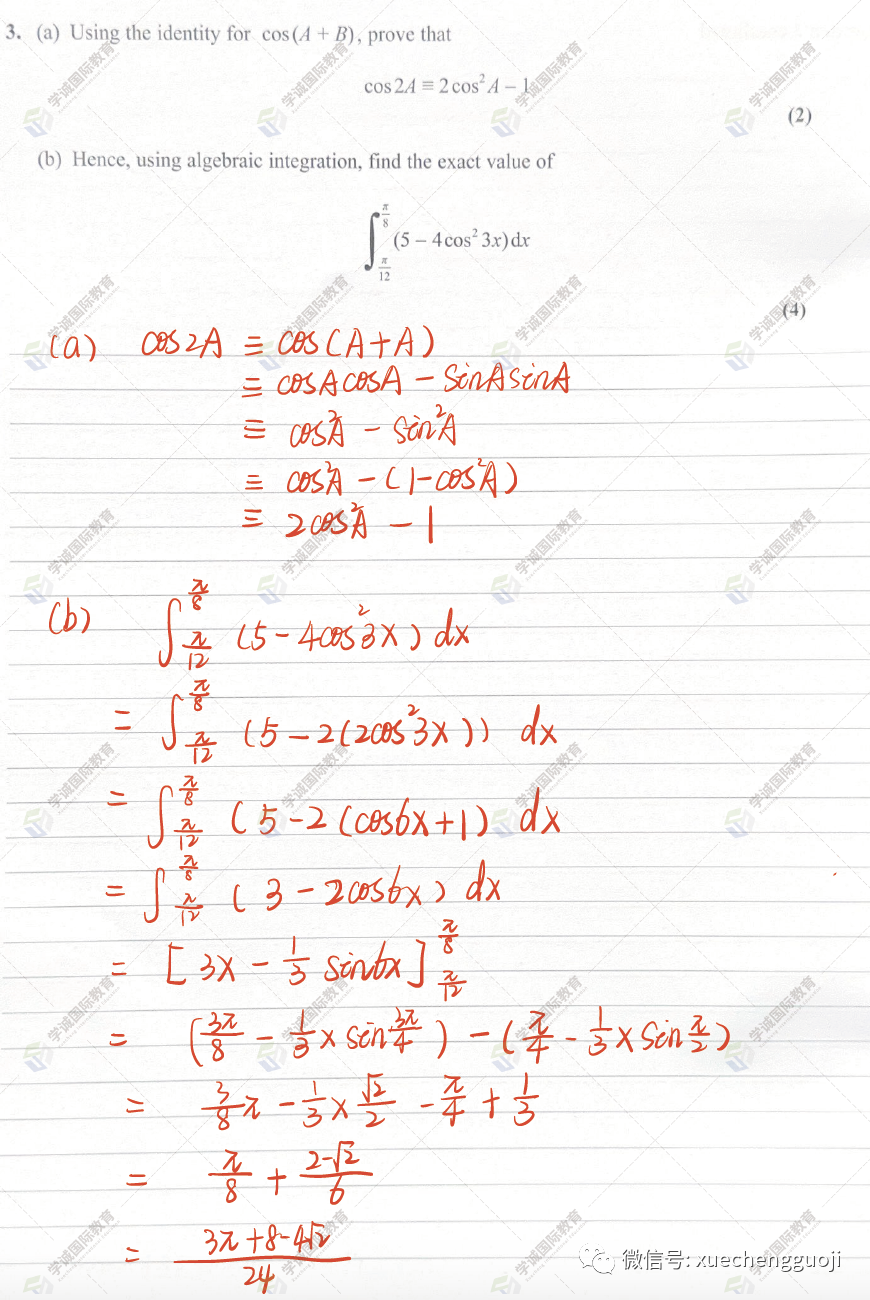 3. (a) Using the identity for cos(A + B), prove that
cos2A ≡ 2cos² A – 1
(2)
(b) Hence, using algebraic integration, find the exact value of
∫_{π/12}^{π/8} (5 – 4cos² 3x) dx
(4)
(a) cos2A ≡ cos(A+A)
≡ cosAcosA – sinAsinA
≡ cos²A – sin²A
≡ cos²A – (1-cos²A)
≡ 2cos²A – 1
(b) ∫_{π/12}^{π/8} (5 - 4cos²3x) dx
= ∫_{π/12}^{π/8} (5 – 2(2cos²3x)) dx
= ∫_{π/12}^{π/8} (5 - 2(cos6x+1)) dx
= ∫_{π/12}^{π/8} (3 – 2cos6x) dx
= [3x – 1/3 sin6x]_{π/12}^{π/8}
= (3π/8 – 1/3 × sin 3π/4) – (π/4 – 1/3 × sin π/2)
= 3/8 π – 1/3 × √2/2 – π/4 + 1/3
= π/8 + 2-√2/6
= 3π+8-4√2/24
学诚国际教育
微信号: xuechengguoji